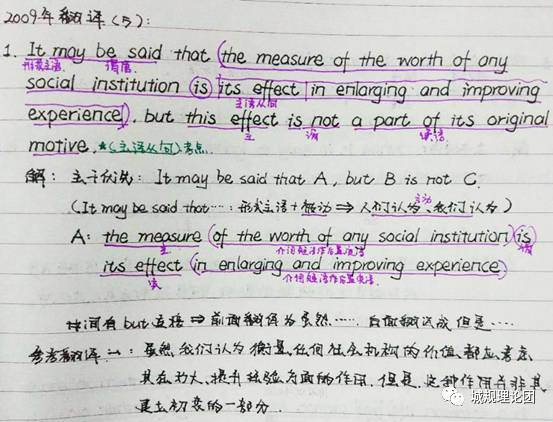 2009年翻译(5):
1. It may be said that (the measure of the worth of any
形式主语 谓语
social institution (is) its effect in enlarging and improving
主语从句
experience), but this effect is not a part of its original
主 谓 宾语
motive. *(主语从句)考点
解: 主干识别: It may be said that A, but B is not C.
(It may be said that …: 形式主语+被动 ⇒ 人们认为、我们认为)
主动
A: the measure (of the worth of any social institution) (is)
主 介词短语作后置定语
its effect (in enlarging and improving experience)
介词短语作后置定语
中间有but连接 ⇒ 前面翻译为虽然…… 后面翻译成但是……
参考翻译一: 虽然,我们认为衡量任何社会机构的价值,都应考虑
其在扩大、提升经验方面的作用,但是,这种作用并非其
最初动机的一部分.
城规理论团